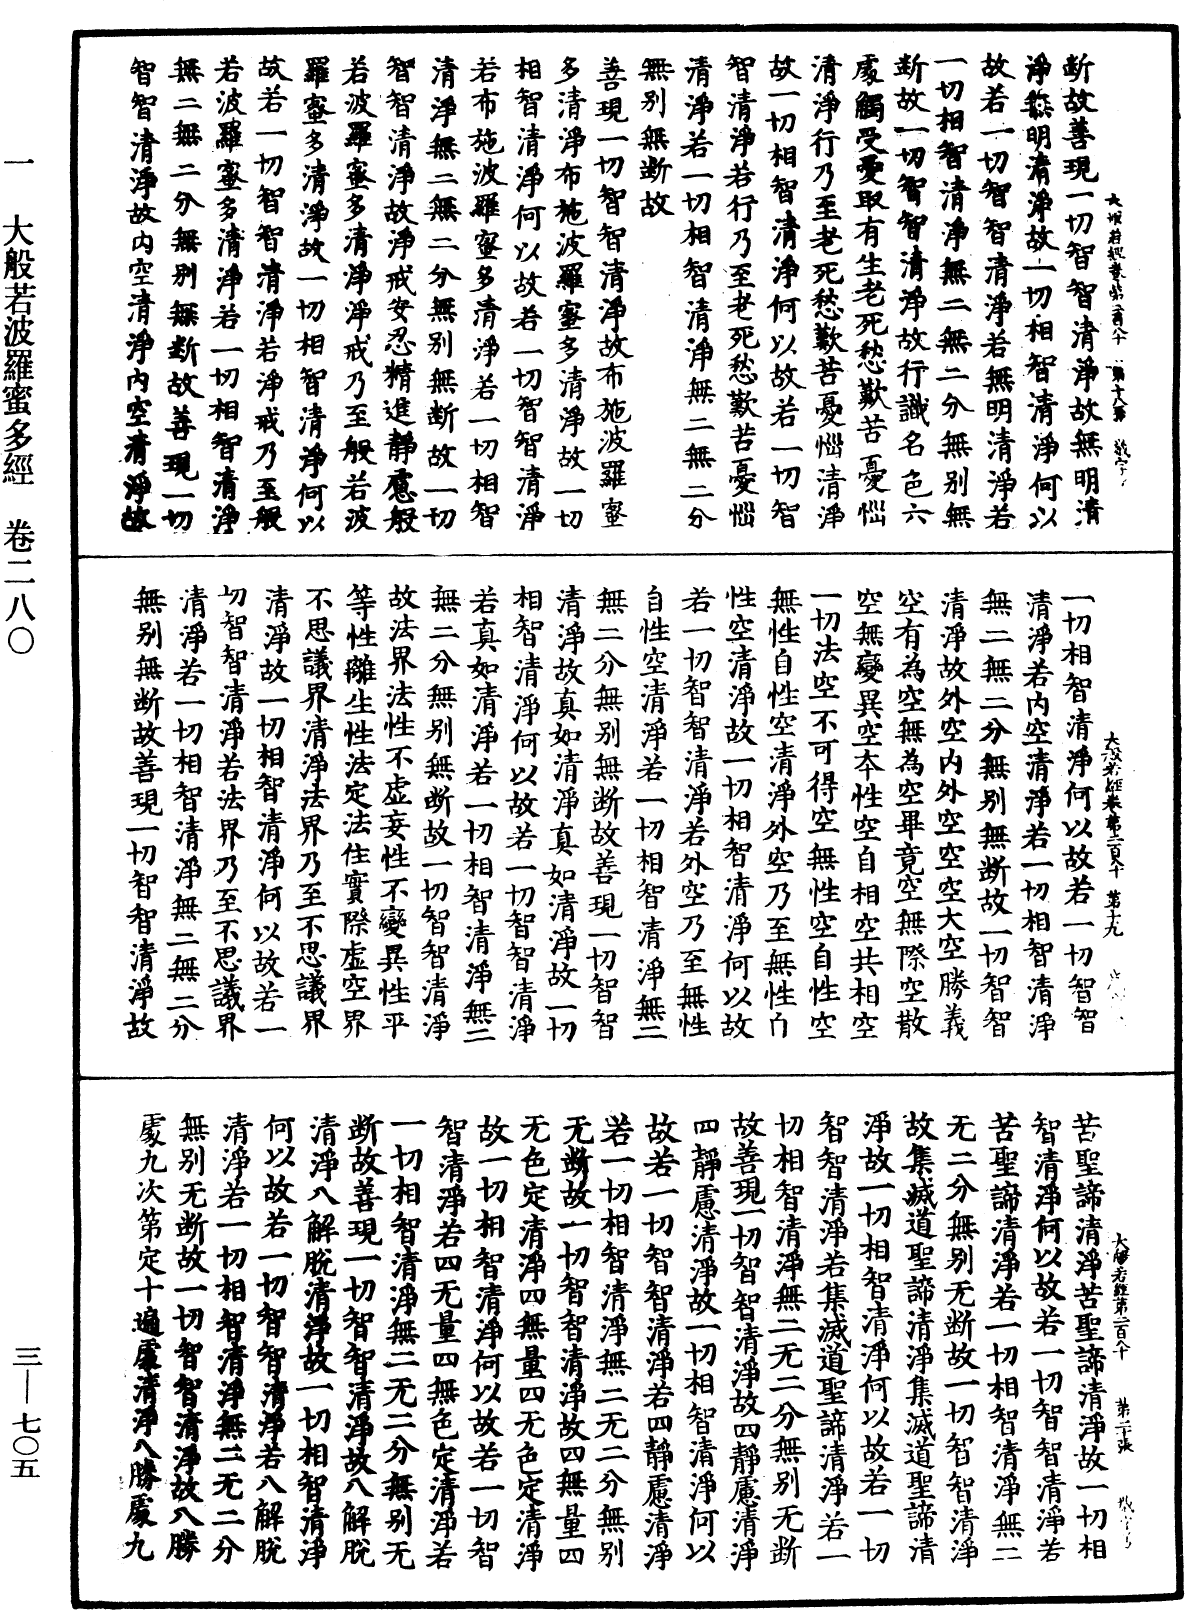 一 大般若波羅蜜多經 卷二八〇
三—七〇五
断故善現一切智智清淨故無明清
淨無明清淨故一切相智清淨何以
故若一切智智清淨若無明清淨若
一切相智清淨無二無二分無别無
断故一切智智清淨故行識名色六
處觸受愛取有生老死愁歎苦憂惱
清淨行乃至老死愁歎苦憂惱清淨
故一切相智清淨何以故若一切智
智清淨若行乃至老死愁歎苦憂惱
清淨若一切相智清淨無二無二分
無别無断故
善現一切智智清淨故布施波羅蜜
多清淨布施波羅蜜多清淨故一切
相智清淨何以故若一切智智清淨
若布施波羅蜜多清淨若一切相智
清淨無二無二分無别無断故一切
智智清淨故淨戒安忍精進靜慮般
若波羅蜜多清淨淨戒乃至般若波
羅蜜多清淨故一切相智清淨何以
故若一切智智清淨若淨戒乃至般
若波羅蜜多清淨若一切相智清淨
無二無二分無别無断故善現一切
智智清淨故内空清淨内空清淨故
一切相智清淨何以故若一切智智
清淨若内空清淨若一切相智清淨
無二無二分無别無断故一切智智
清淨故外空内外空空空大空勝義
空有為空無為空畢竟空無際空散
空無變異空本性空自相空共相空
一切法空不可得空無性空自性空
無性自性空清淨外空乃至無性自
性空清淨故一切相智清淨何以故
若一切智智清淨若外空乃至無性
自性空清淨若一切相智清淨無二
無二分無别無断故善現一切智智
清淨故真如清淨真如清淨故一切
相智清淨何以故若一切智智清淨
若真如清淨若一切相智清淨無二
無二分無别無断故一切智智清淨
故法界法性不虛妄性不變異性平
等性離生性法定法住實際虛空界
不思議界清淨法界乃至不思議界
清淨故一切相智清淨何以故若一
切智智清淨若法界乃至不思議界
清淨若一切相智清淨無二無二分
無别無断故善現一切智智清淨故
大般若經卷第二百八十 第十九
苦聖諦清淨苦聖諦清淨故一切相
智清淨何以故若一切智智清淨若
苦聖諦清淨若一切相智清淨無二
无二分無别无断故一切智智清淨
故集滅道聖諦清淨集滅道聖諦清
淨故一切相智清淨何以故若一切
智智清淨若集滅道聖諦清淨若一
切相智清淨無二无二分無别无断
故善現一切智智清淨故四靜慮清淨
四靜慮清淨故一切相智清淨何以
故若一切智智清淨若四靜慮清淨
若一切相智清淨無二无二分無别
无断故一切智智清淨故四無量四
无色定清淨四無量四无色定清淨
故一切相智清淨何以故若一切智
智清淨若四无量四無色定清淨若
一切相智清淨無二无二分無别无
断故善現一切智智清淨故八解脫
清淨八解脫清淨故一切相智清淨
何以故若一切智智清淨若八解脫
清淨若一切相智清淨無二无二分
無别无断故一切智智清淨故八勝
處九次第定十遍處清淨八勝處九
大般若經第二百八十 第二十張